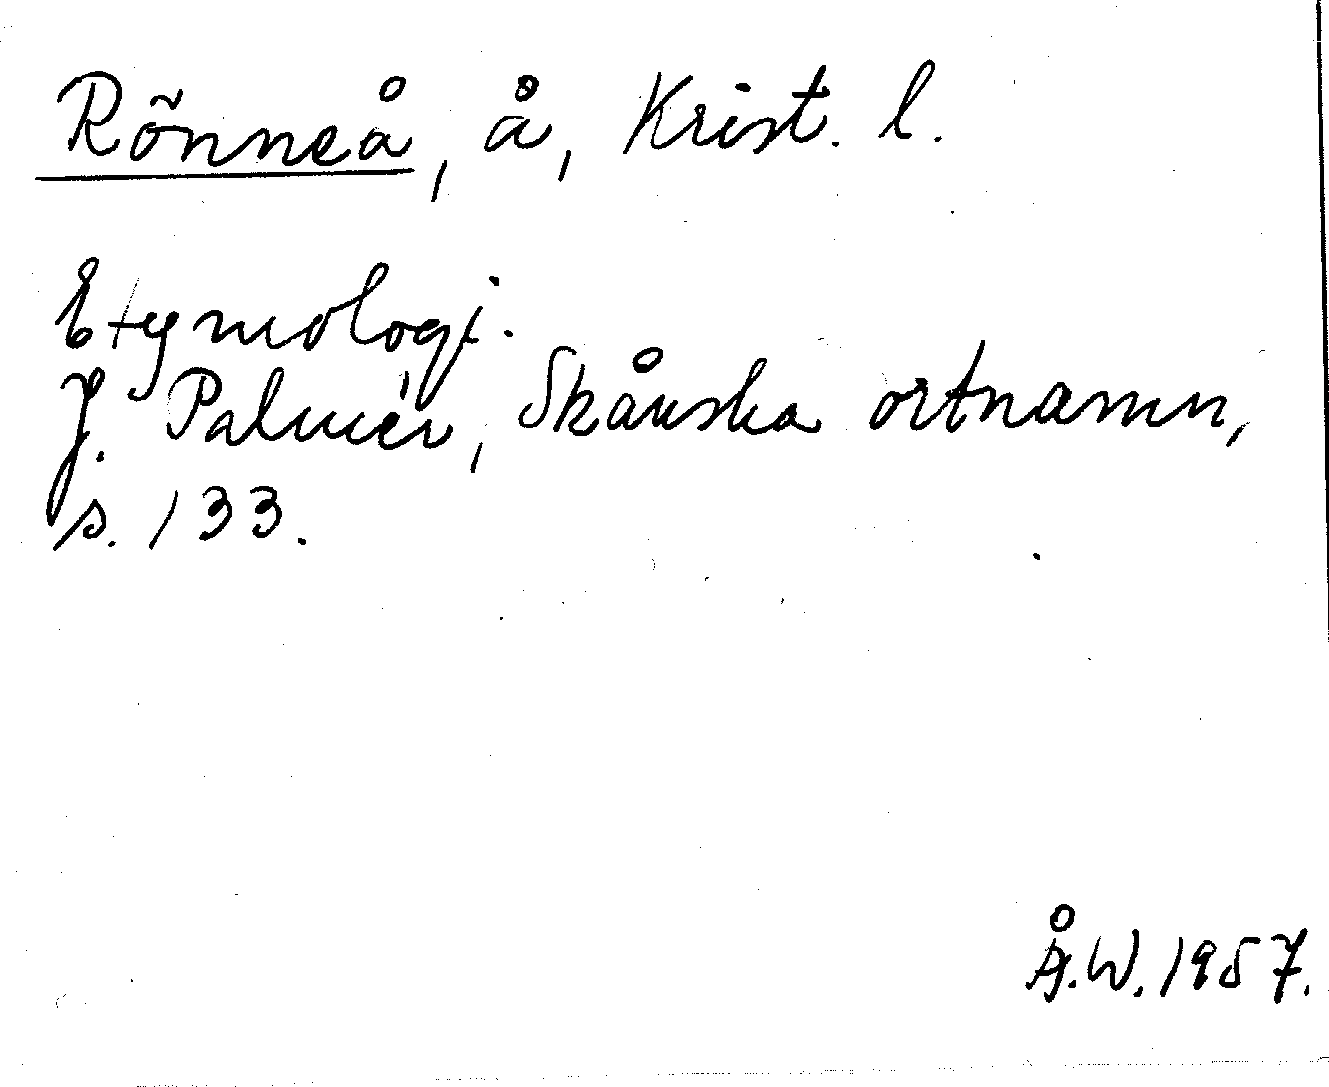 Rönneå, å, Krist. l.
Etymologi.
J. Palmér, Skånska ortnamn,
s. 133.
Å.W. 1957.